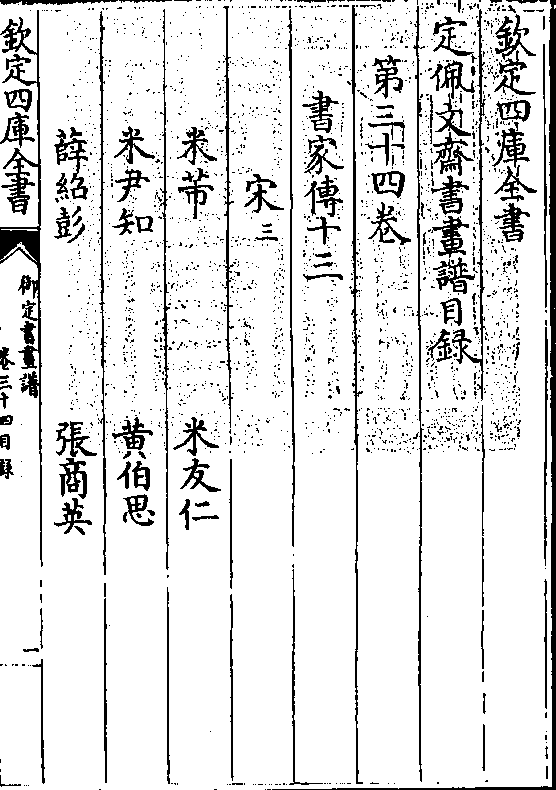 欽定四庫全書
定佩文齋書畫譜目録
第三十四卷
書家傳十三
宋三
米芾 米友仁
米尹知 黄伯思
薛紹彭 張商英
欽定四庫全書
御定書畫譜
卷三十四目録
一